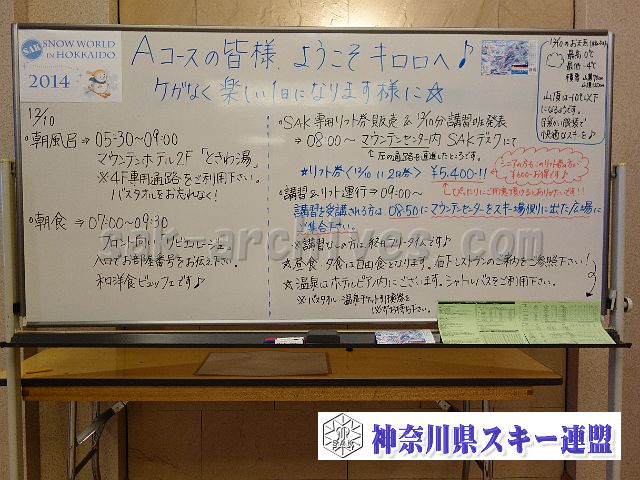 SAK SNOW WORLD
IN HOKKAIDO
2014
Aコースの皆様、ようこそキロロへ♪
ケガなく楽しい1日になります様に☆
12/10のお天気
最高 0℃
最低 -4℃
積雪 山麓70cm
山頂120cm
山頂は-10℃以下
になるようです。
快適なスキーを♪
12/10
・朝風呂⇒05:30~09:00
マウンテンホテル2F「ときわ湯」
※4F専用通路をご利用下さい。
バスタオルをお忘れなく!
・朝食⇒07:00~09:30
フロント向い
入口でお部屋番号をお伝え下さい。
和洋食ビュッフェです♪
・SAK専用リフト券販売&12/10分講習班発表
⇒08:00~マウンテンセンター内SAKデスクにて
左の通路を直進したところです。
☆リフト券<12/10,11 2日券> ¥5,400!!
シニアの方もこのリフト券の方が
¥600-お得です!
ぴったりにご用意頂けるとありがたいです!!
・講習&リフト運行⇒09:00~
講習を受講される方は08:50にマウンテンセンターをスキー場側に出た広場に
ご集合下さい。
※講習なしの方は終日フリータイムです♪
☆昼食・夕食は自由食となります。右下レストランのご案内をご参照下さい!
☆温泉はホテルピアノ内にございます。シャトルバスをご利用下さい。
※バスタオル・温泉チケット引換券を
必ずお持ち下さい。
sak-archives.com
SAK
神奈川県スキー連盟